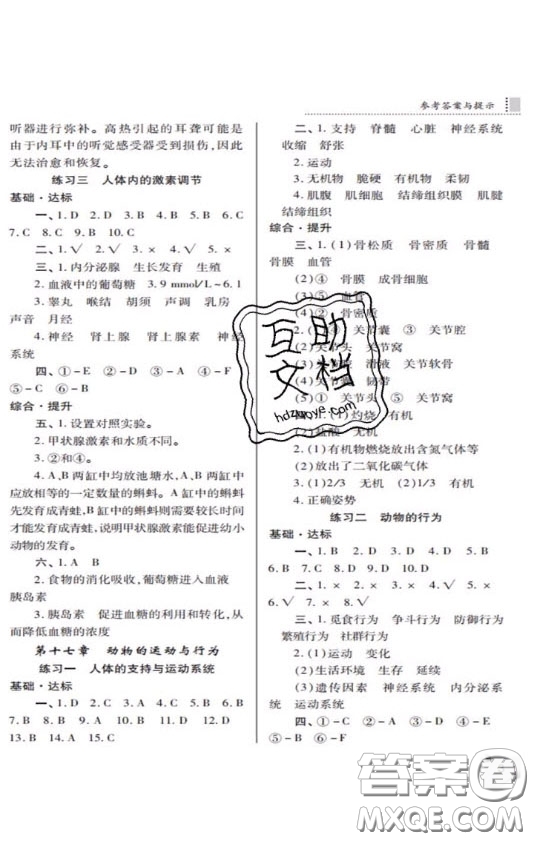 参考答案与提示
听器进行弥补。高热引起的耳聋可能是
由于内耳中的听觉感受器受到损伤，因此
无法治愈和恢复。
练习三 人体内的激素调节
基础·达标
一、1. D 2. D 3. D 4. B 5. B 6. C
7. C 8. C 9. B 10. C
二、1. √ 2. √ 3. × 4. √ 5. ×
三、1. 内分泌腺 生长发育 生殖
2. 血液中的葡萄糖 3.9 mmol/L~6.1
3. 睾丸 喉结 胡须 声调 乳房
声音 月经
4. 神经 肾上腺 肾上腺素 神经
系统
四、①-E ②-D ③-A ④-F
⑤-C ⑥-B
综合·提升
五、1. 设置对照实验。
2. 甲状腺激素和水质不同。
3. ②和④。
4. A、B两缸中均放池塘水，A、B两缸中
应放相等的一定数量的蝌蚪。A缸中的蝌蚪
先发育成青蛙，B缸中的蝌蚪则需要较长时间
内发育成青蛙，说明甲状腺激素能促进幼小
动物的发育。
六、1. A B
2. 食物的消化吸收，葡萄糖进入血液
胰岛素
3. 胰岛素 促进血糖的利用和转化，从
而降低血糖的浓度
第十七章 动物的运动与行为
练习一 人体的支持与运动系统
基础·达标
一、1. D 2. C 3. B 4. D 5. B 6. B
7. B 8. B 9. B 10. D 11. D 12. D
13. B 14. A 15. C
二、1. 支持 脊髓 心脏 神经系统
收缩 舒张
2. 运动
3. 无机物 脆硬 有机物 柔韧
4. 肌腹 肌细胞 结缔组织膜 肌腱
结缔组织
综合·提升
三、1. (1)骨松质 骨密质 骨髓
骨膜 血管
(2)④ 骨膜 成骨细胞
(3)⑤ 血管
骨密质
④ 关节囊 ③ 关节腔
(2)关节头 关节窝
滑液 关节软骨
韧带
(5)① 关节头 ⑤ 关节窝
灼烧 有机
无机
2. (1)有机物燃烧放出含氮气体等
(2)放出了二氧化碳气体
3. (1)1/3 无机 (2)2/3 有机
4. 正确姿势
练习二 动物的行为
基础·达标
一、1. B 2. D 3. C 4. D 5. D
6. D 7. B 8. D 9. D 10. D
二、1. × 2. √ 3. × 4. √ 5. ×
6. √ 7. × 8. √
三、1. 觅食行为 争斗行为 防御行为
繁殖行为 社群行为
2. (1)运动 变化
(2)生活环境 生存 延续
(3)遗传因素 神经系统 内分泌系
统 运动系统
四、①-C ②-D ③-A ④-E
⑤-B ⑥-F
互助
文档
hdzuoye.com
答案圈
MXQE.COM